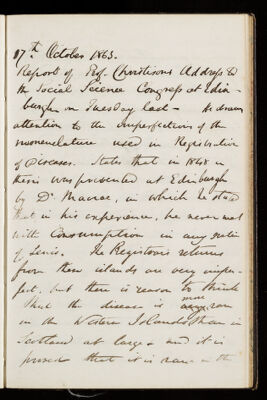 17th October 1863.
Report of Prof. Christisons Address to
the Social Science Congress at Edin-
burgh on Tuesday last - He draws
attention to the imperfections of the
nomenclature used in Registration
of Diseases. States that in 1868 a
thesis was presented at Edinburgh
by Dr Macrae, in which he stated
that in his experience, he never met
with Consumption in any native
of Lewis. The Registrars returns
from these islands are very imper-
fect, but there is reason to think
that the disease is more rare
in the Western Islands than in
Scotland at large - and it is
proved that it is rare in the